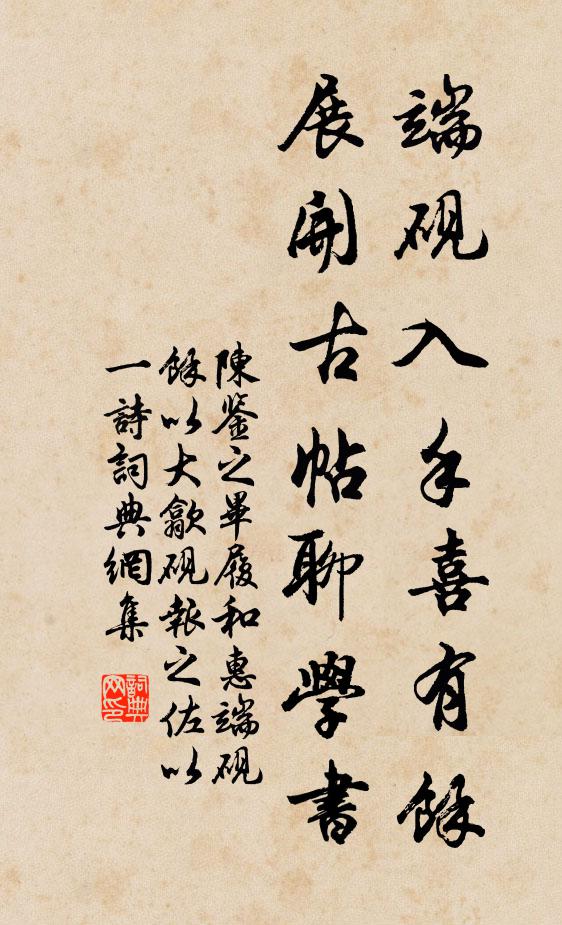 端硯入手喜有餘
展開古帖聊學書
陳鉴之畢履和惠端硯
餘以大歙硯報之佐以
一詩詞典網集
詞典
网印